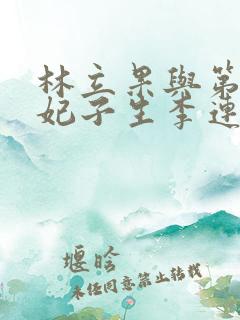 林立果與第
妃子生李運
堰晗
未经同意禁止转载